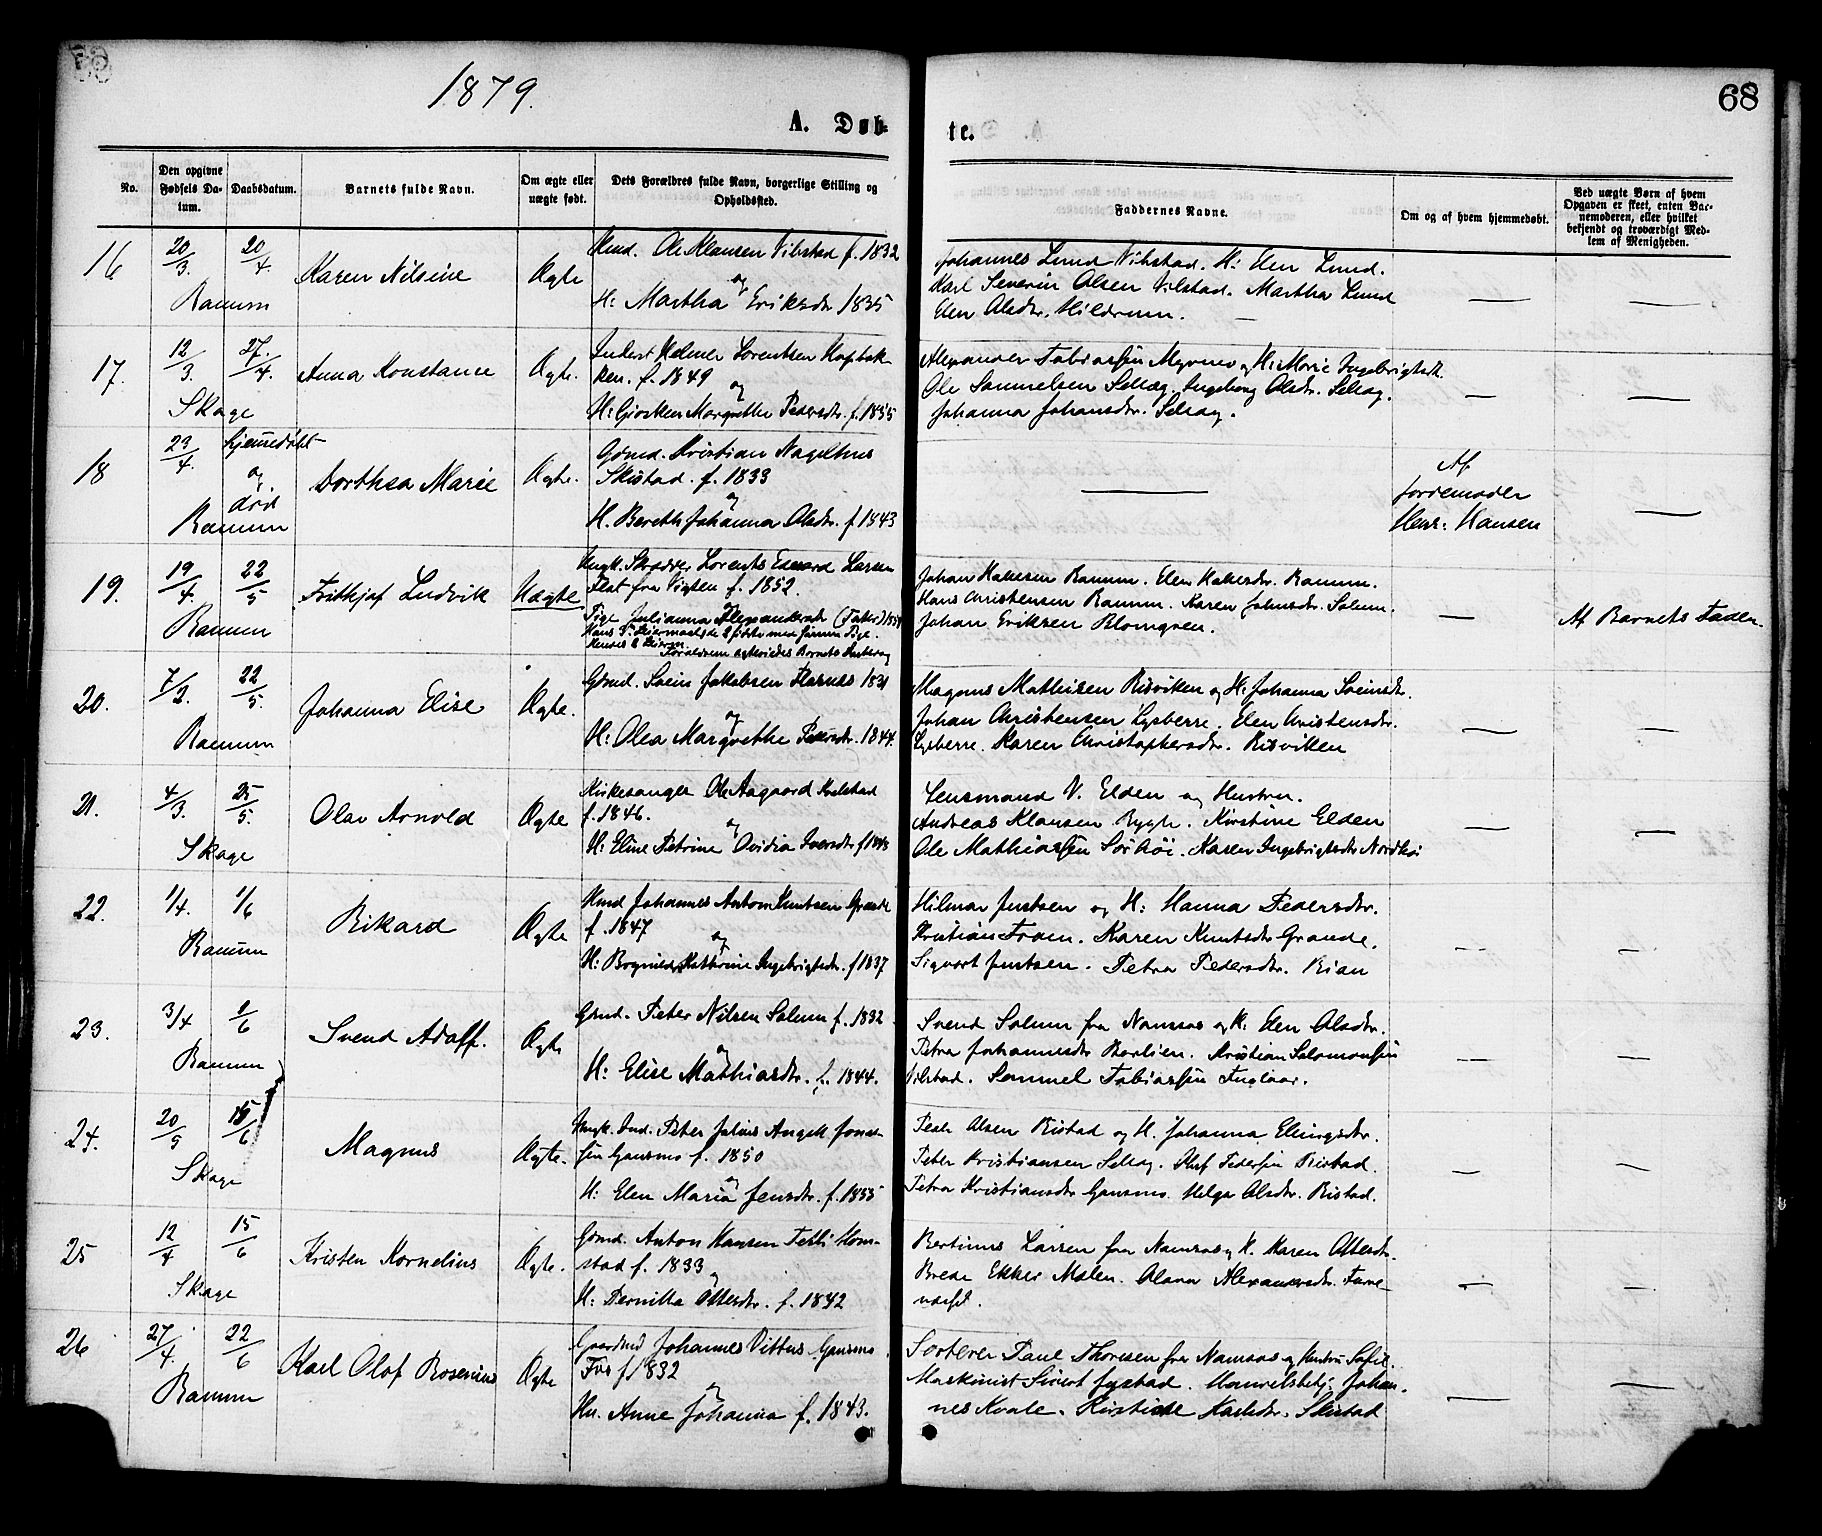 1879.
68
A. Døb-
te.
No.
Den opgivne Fødsels Da-tum.
Daabsdatum.
Barnets fulde Navn.
Om ægte eller uægte født.
Dets Forældres fulde Navn, borgerlige Stilling og Opholdssted.
Faddernes Navne.
Om og af hvem hjemmedøbt.
Ved uægte Børn af hvem Opgaven er skeet, enten Bar-nemoderen, eller hvilket bekjendt og troværdigt Med-lem af Menigheden.
16
20/3.
20/4.
Ranum
Karen Nilsine
Ægte
Hmd. Ole Klausen Vibstad f. 1832
og
H: Martha Eriksdr. 1835
Johannes Lund Vibstad. H: Elen Lund.
Karl Severin Olsen Vibstad. Martha Lund
Elen Olsdr. Hildrum. —
17.
12/3.
27./4.
Skage
Anna Konstance
Ægte.
Inderst Helmer Lorentsen Hagbak-
ken. f. 1849
og
Margrethe Pedersdr. f. 1855
Alexander Tobiassen Myrmo og H: Marie Ingebrigtsdt.
Ole Samuelsen Selleg. Ingeborg Olsdr. Selleg.
Johanna Johansdr. Selleg.
18
23/4.
hjemmedøbt
og
død
Ranum
Dorthea Marie
Ægte.
Gdmd. Kristian Nagelhus
Skistad. f. 1833
og
H. Bereth Johanna Olsdr. f 1843
Af
Jordemoder
Hansen
19.
19/4
22/5
Ranum
Frithjof Ludvik
Uægte
Ungk. Skrædder Lorents Edvard Larsen
Flat fra Vigten f. 1852.
Pige Julianna Alexandersdr
Johan Hansen Ranum. Elen Ranum.
Hans Christensen Ranum. Karen Johnsdr. Solum.
Johan Eriksen Blomqven.
Af Barnets Fader.
20.
7/2.
22/5.
Ranum
Johanna Elise
Ægte.
Gdmd. Svein Jakobsen Flasnes 1831
og
H: Olea Margrethe Pedersdr. 1844.
Magnus Mathisen Risviken og H: Johanna Sveinsdr.
Johan Christensen Lysberre. Elen Christensdr.
Lysberre. Karen Christophersdr. Risviken
21.
4/3.
25/5.
Skage
Olav Arnold
Ægte
Kirkesanger Ole Aagaard
f. 1846.
og
H: Eline Petrine Ovidia Iversdr
Lensmand V. Elden og Hustru.
Andreas Klausen Rygh. Kirstine Elden
Ole Mathiassen Sørhøi. Karen Ingebrigtsdr Nordhøi
22.
1/4.
1/6
Ranum
Rikard
Ægte
Hmd Johannes Anton Knutsen Grande
f. 1847
og
H: Kathrine Ingebrigtsdr. f 1837
Hilmar Justsen og H: Hanna Pedersdr.
Kristian Troen. Karen Knutsdr Grande.
Sigvart Justsen. Petra Pedersdr. Rian
23.
3/4
1/6
Ranum
Svend Adolf.
Ægte
Gdmd. Peter Nilsen Solum f. 1832
og
H: Elise Mathiasdr. f. 1844.
Svend Solum fra Namsos og H. Elen Olsdr.
Petra Johannesdr Borlien. Kristian Salomonsen
Vibstad. Samuel Tobiassen Fuglaar.
24.
20/5
15/6
Skage
Magnus
Ægte.
Ungk. Ind. Peter Julius Angell Jonas-
sen Gansmo f. 1850
og
H: Elen Maria Jensdr. f. 1855
Peder Olsen Ristad og H. Johanna Elingsdr.
Peter Kristiansen Selleg. Oluf Pedersen Ristad.
Petra Kristiansdr Gansmo. Helga Olsdr. Ristad.
25
12/4
15/6
Skage
Kristen Kornelius
Ægte.
Gdmd. Anton Hansen Tetli Hom-
stad f. 1833
og
H: Pernilla Ottesdr. f. 1842
Bertinus Larsen fra Namsos og H. Karen Ottesdr.
Brede Ekker Molen. Olava Alexandersdr.
26
27/4.
22/6
Ranum
Karl Olof Rosenius
Ægte
Gaardmd Johannes Vittus Gansmo
f 1832
og
Hu. Anne Johanna f. 1843.
Sorterer Paul Thoresen fra Namsos og Hustru
Maskinist Sivert Fystad. Johan-
nes Kvale. Kirstine Karlsdr. Skistad